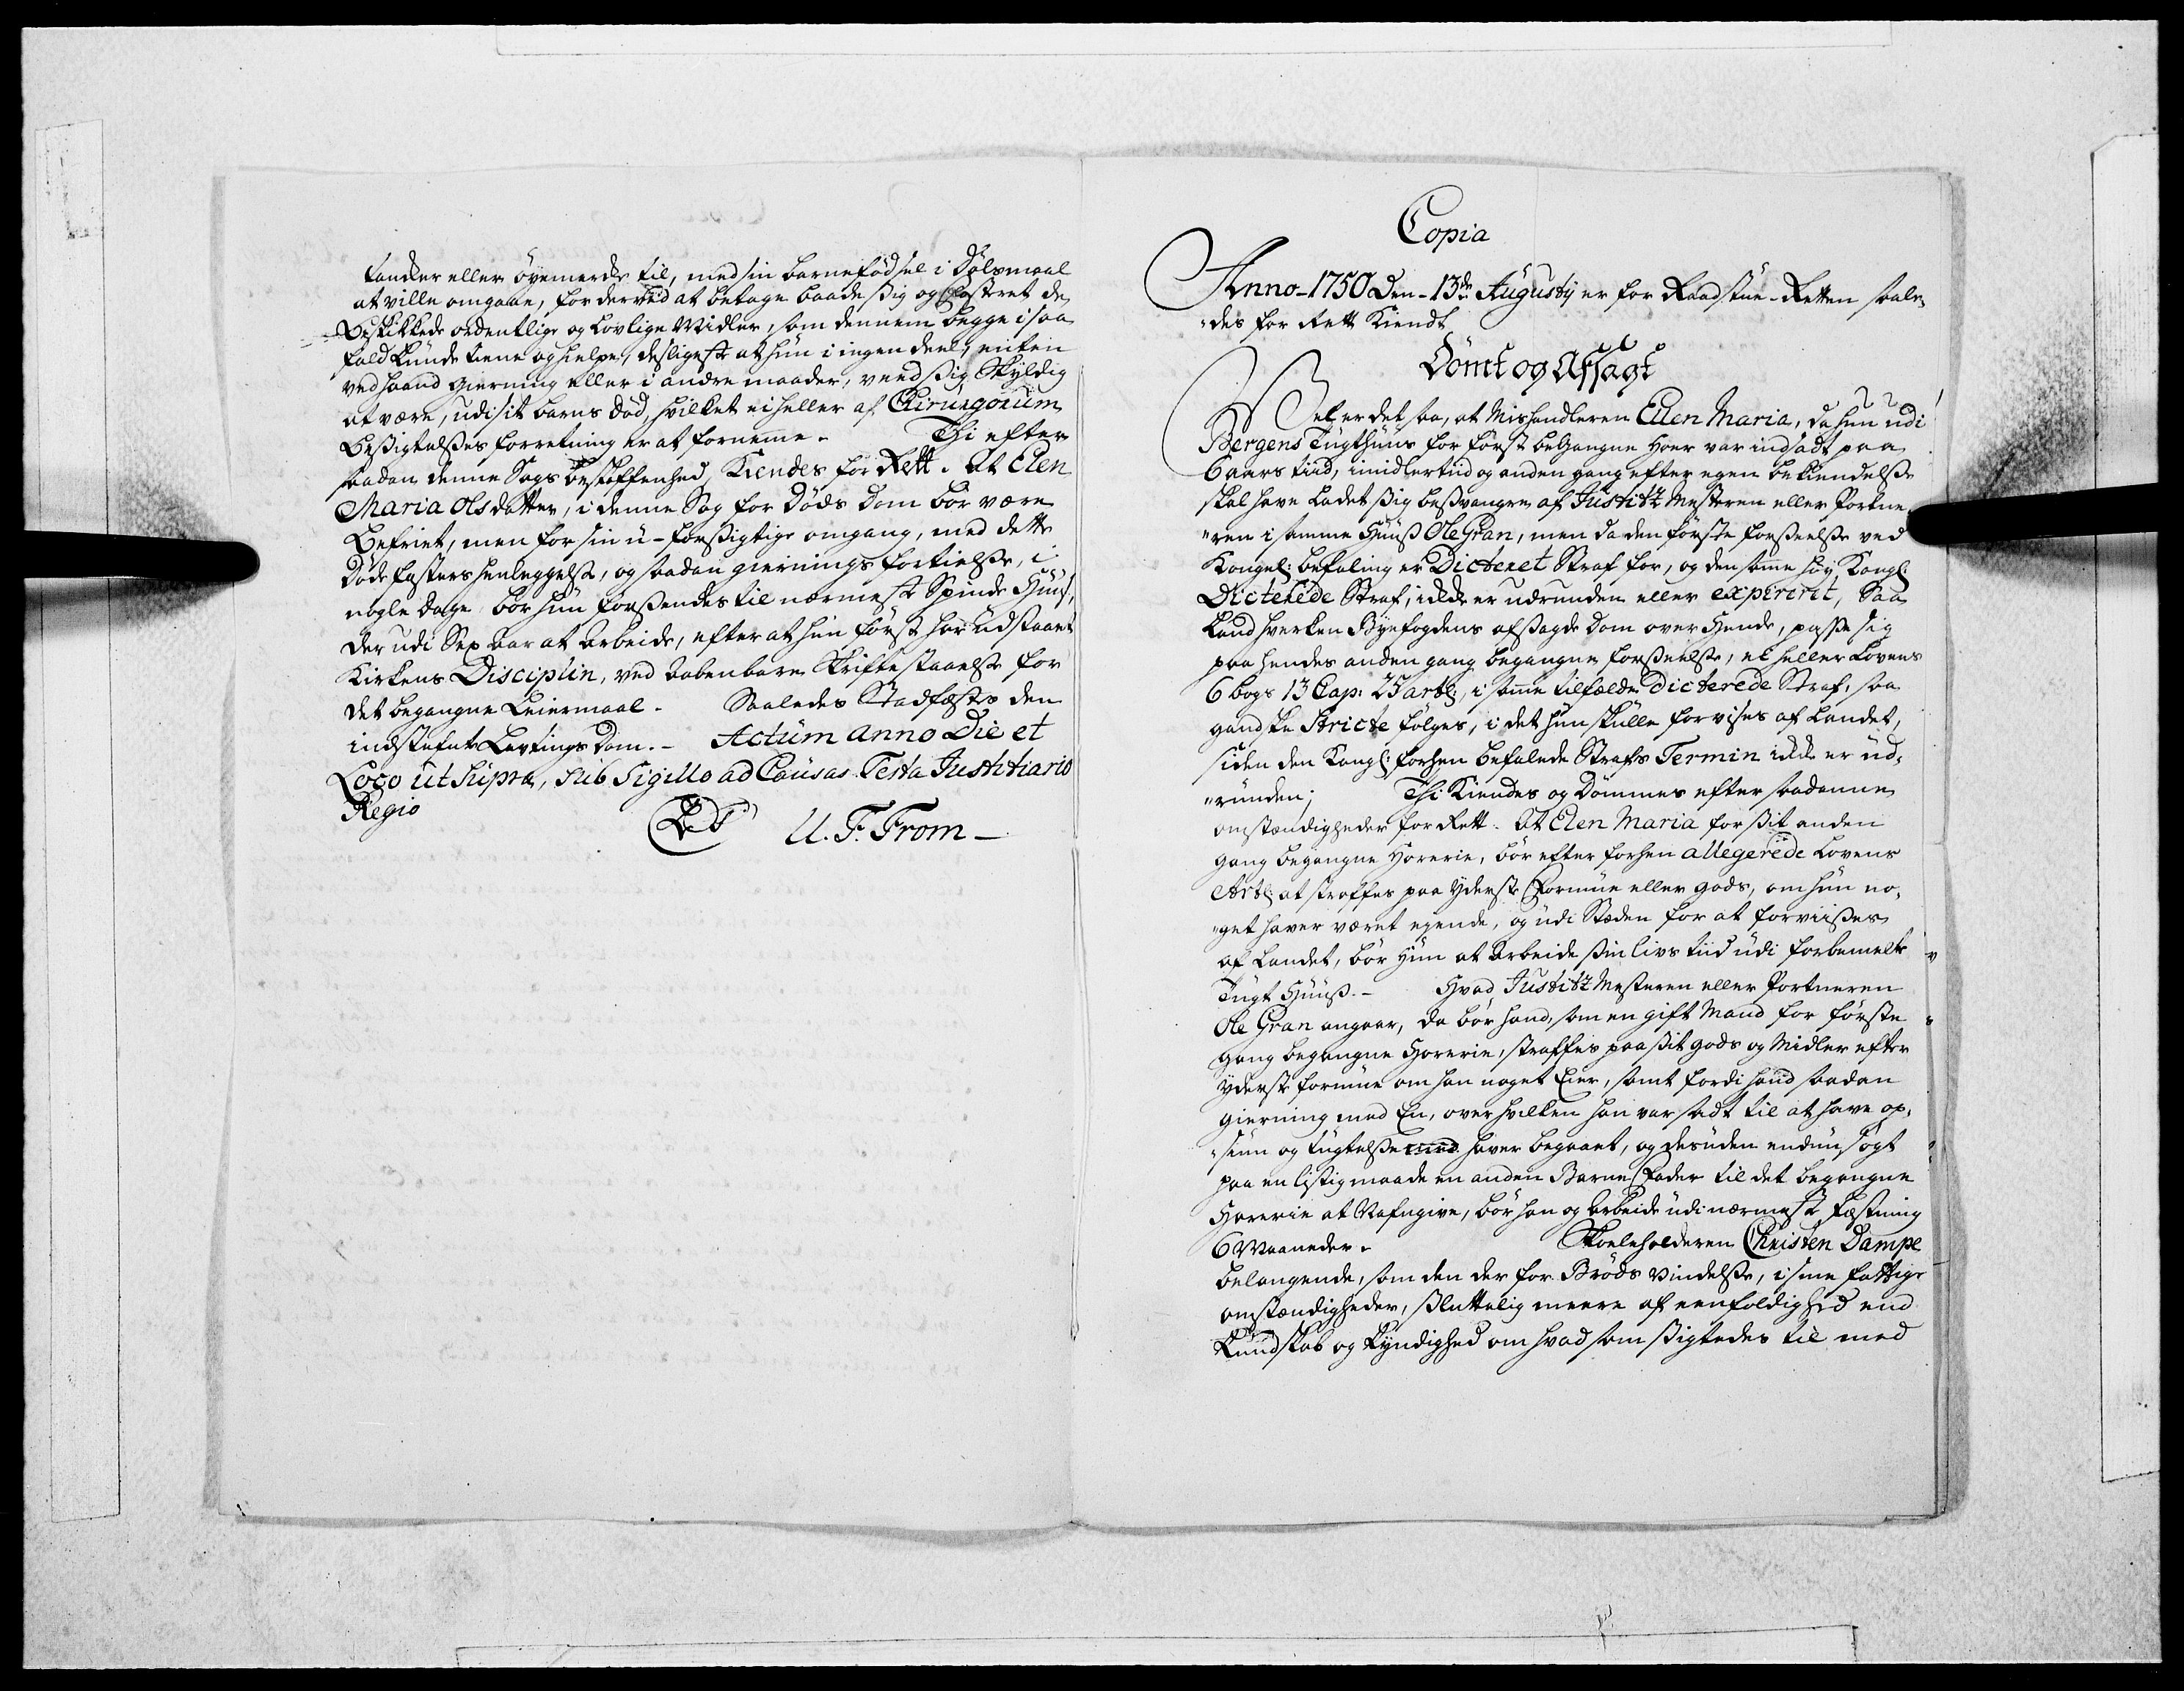 tancker eller øyemercke til, med sin barnefødsel i Dølsmaal
at ville omgaae, for derved at betage baade sig og Fosteret de
Beskikkede ordentlige og Lovlige Midler, som dennem begge i saa
fald kunde tiene og hielpe, desligeste at hun i ingen deel, enten
ved haand gierning eller i andre maader, veed sig Skyldig
at være, udi sit barns død, hvilket ei heller af Chirurgorum
Besigtelses forretning er at fornemme. Thi efter
saadan denne Sags beskaffenhed, Kiendes for Rett. At Elen
Maria Olsdatter, i denne Sag for Døds Dom bør være
Befriet, men for sin u-forsigtige omgang, med dette
døde fosters henleggelse, og saadan giernings fortielse, i
nogle dage, bør hun forsendes til nærmeste Spinde Huus,
der udi Sex Aar at Arbeide, efter at hun først har udstaaet
Kirkens Disciplin, ved Aabenbare Skriftestaaelse for
det begangne Leiermaal. Saaledes Stadfæstes den
indstefnte Lavtings Dom. Actum Anno Die et
Loco ut Supra, Sub Sigillo ad Causas Testa Justitiario
Regio
U. F. From
Copia
Anno 1750 Den 13de Augustij er for Raadstue-Retten saale,
"des for Rett Kiendt
Dömt og Afsagt
Vel er det saa, at Mishandleren Ellen Maria, da hun udi
Bergens Tugthuus for først beGangne Hoer var indsadt paa
6 aars tiid, imidlertiid og anden gang efter egen bekiendelse
skal have Ladet sig besvangre af Justitz Mesteren eller Portne,
"ren i samme Huus Ole Gran, men da den første forseelse ved
Kongel: befaling er Dicteret Straf for, og den samme høy Kongl:
Dicterede Straf, icke er udrunden eller expirerit, Saa
kand hverken Byefogdens afsagde Dom over Hende, passe sig
paa hendes anden gang begangne forseelse, ei heller Lovens
6 bogs 13 Cap: 25 artl:, i samme tilfælde Dicterede Straf, saa
gandske Stricte følges, i det hun skulle forvises af Landet,
siden den Kongl: forhen befalede Straffs Termin icke er ud,
"runden; Thi Kiendes og Dømmes efter saadanne
omstændigheder for Rett. At Elen Maria for sit anden
gang begangne Horerie, bør efter forhen allegerede Lovens
Artl: at straffes paa yderste Formue eller gods, om hun no,
"get haver været eyende, og udi Stæden for at forviises
af Landet, bør Hun at Arbeide sin livs tiid udi forbemelte
Tugt Huus. Hvad Justitz Mesteren eller Portneren
Ole Gran angaar, da bør hand, som en gift Mand for første
gang begangne Horerie, straffes paa sit gods og Midler efter
yderste formue om han noget Eier, samt fordi hand saadan
gierning med En, over hvilken han var sadt til at have op,
"siun og tugtelse haver begaaet, og desuden endnu søgt
paa en listig maade en anden Barne Fader til det begangne
Horerie at Nafngive, bør han og Arbeide udi nærmeste fæstning
6 Maaneder. Skoeleholderen Christen Dampe
belangende, som den der for Brøds vindelse, i sine fattige
omstændigheder, sluttelig meere af eenfoldighed end
Kundskab og kyndighed om hvad som sigtedes til med